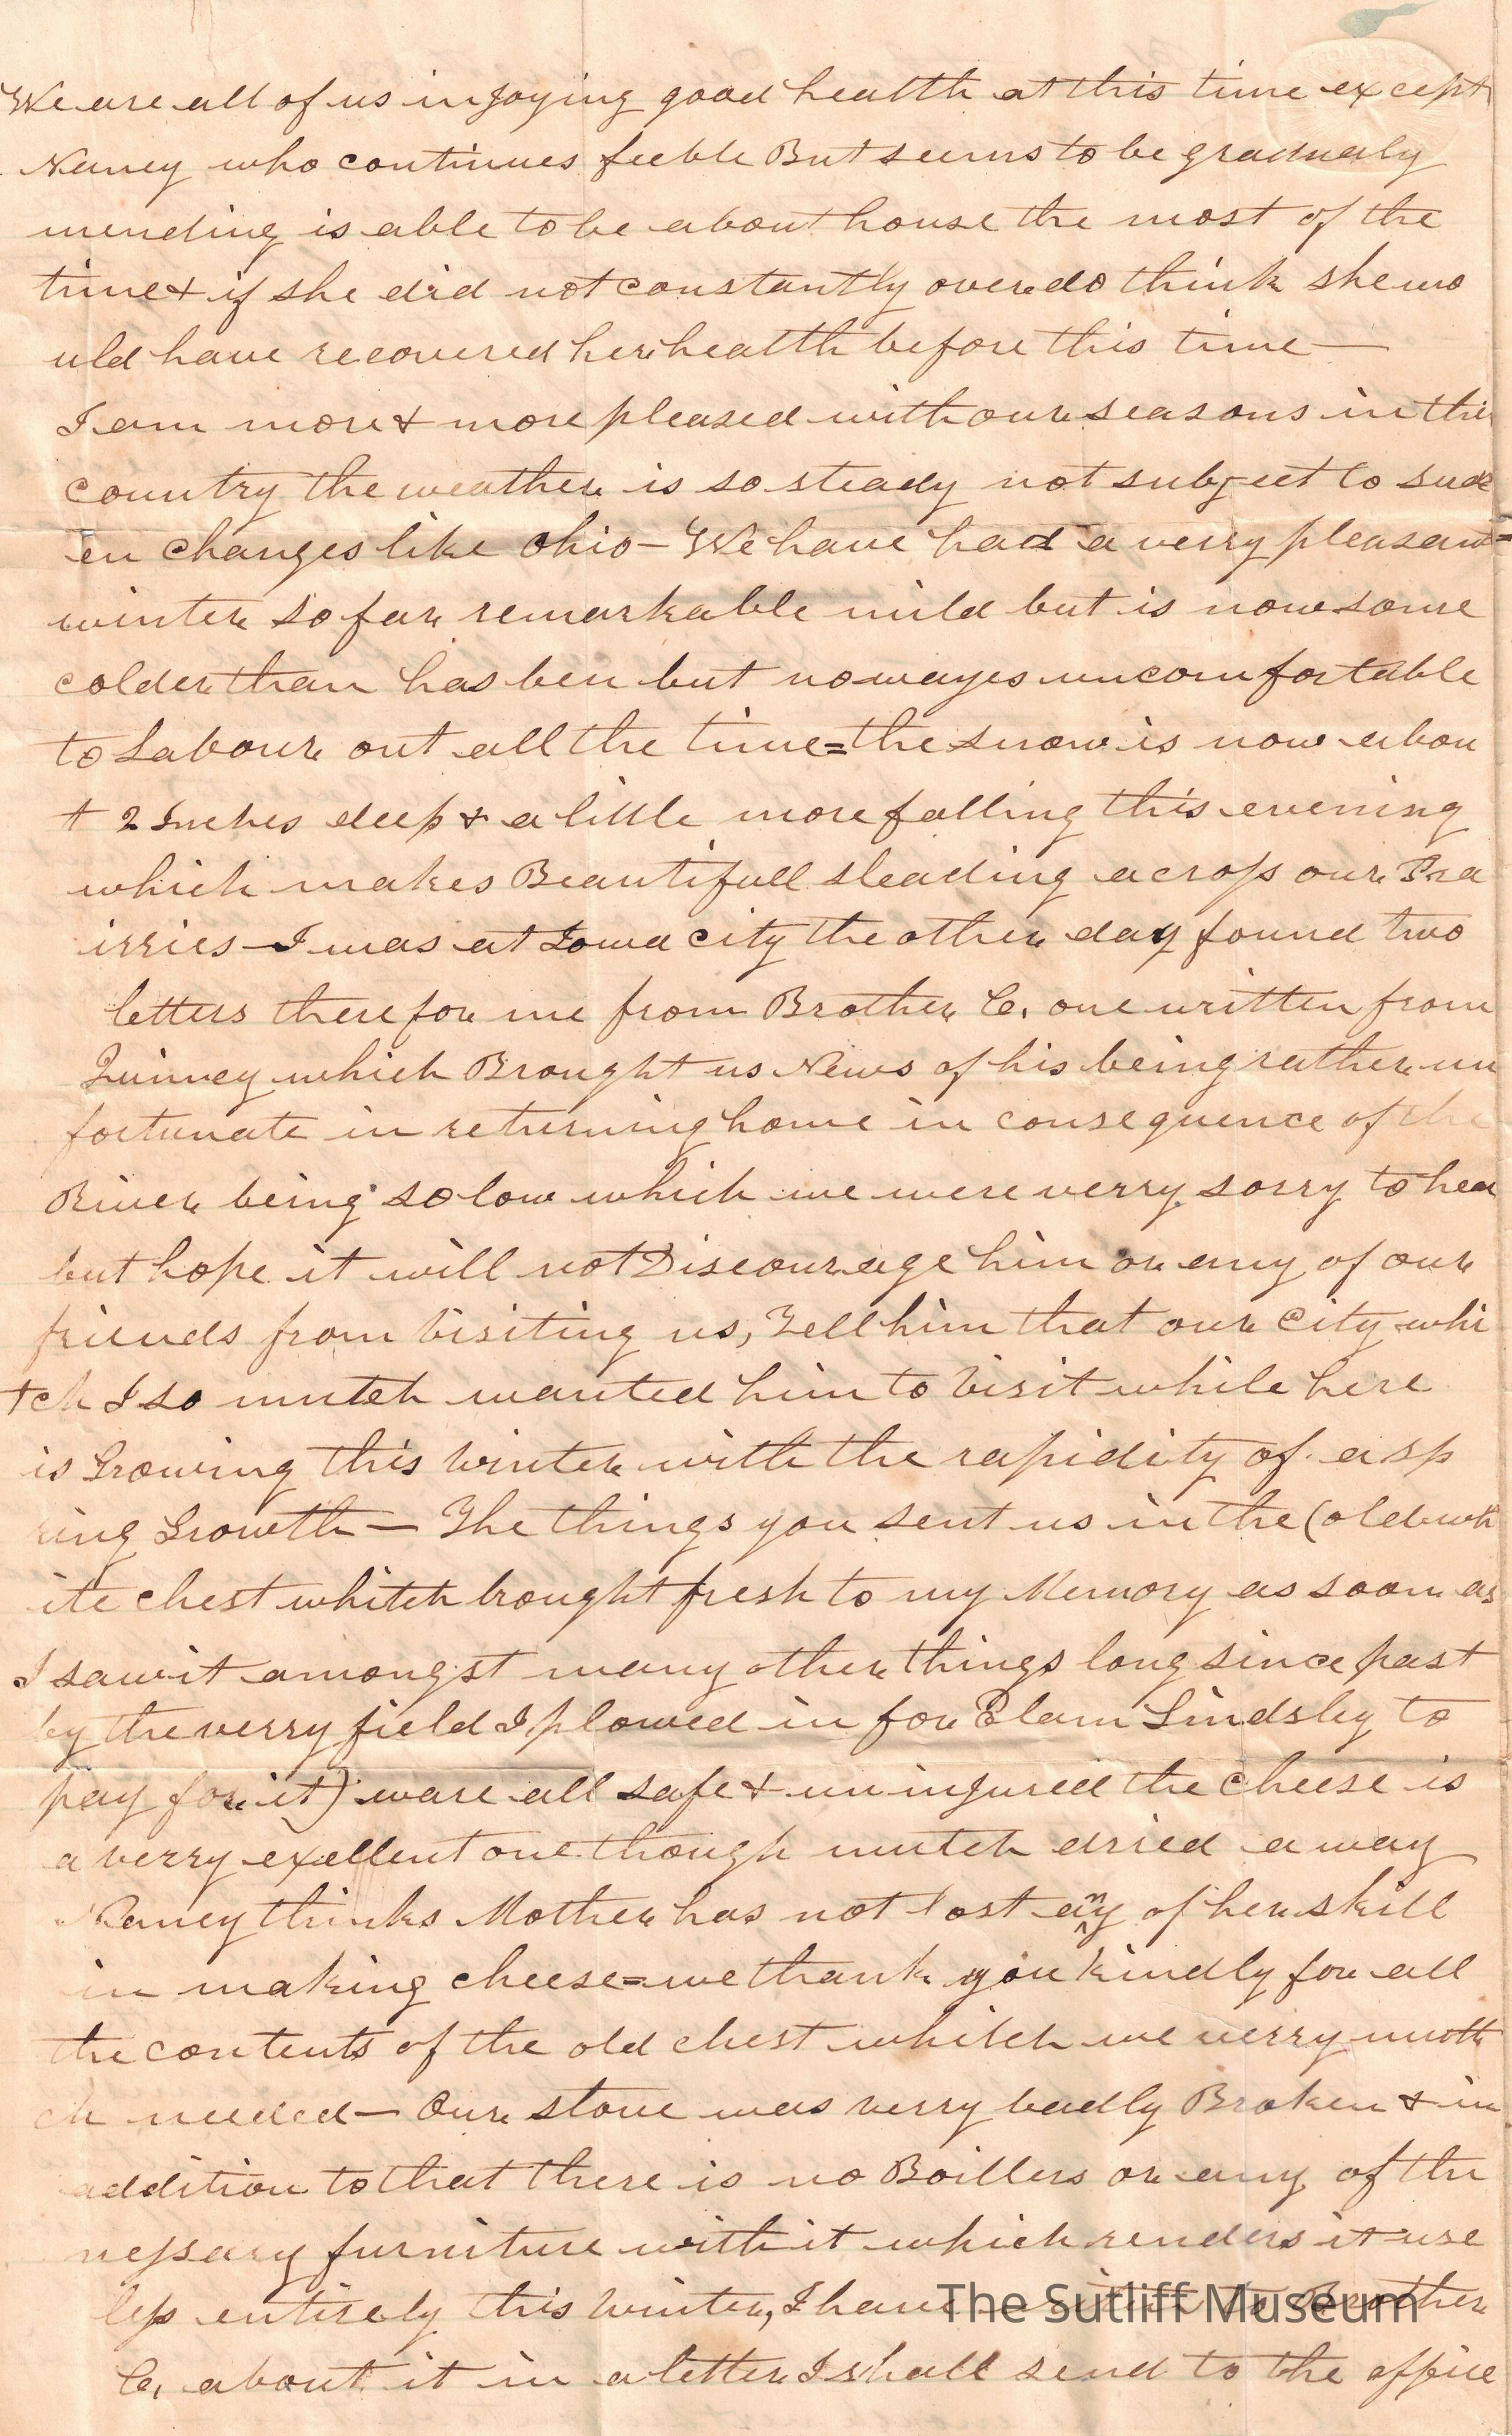 We are all of us injoying good health at this time except
Nancy who continues feeble But seems to be gradualy
mending is able to be about house the most of the
time & if she did not constantly overdo think she wo
uld have recovered her health before this time —
I am more & more pleased with our seasons in this
country the weather is so steady not subject to sudd
en changes like Ohio — We have had a verry pleasant
winter so far remarkable mild but is now some
colder than has ben but noways uncomfortable
to Labour out all the time = the snow is now abou
t 2 Inches deep & a little more falling this evening
which makes Beautifull sleading across our Pra
irries — I was at Iowa city the other day found two
letters there for me from Brother C. one written from
Quinney which Brought us News of his being rather un
fortunate in returning home in consequence of the
River being so low which we were verry sorry to hear
but hope it will not Discourage him or any of our
friends from Visiting us, Tell him that our City whi
tch I so mutch wanted him to Visit while here
is Growing this Winter with the rapidity of a sp
ring Growth — The things you sent us in the (old wh
ite chest whitch brought fresh to my Memory as soon as
I saw it amongst many other things long since past
by the verry field I plowed in for Elam Lindsley to
pay for it) ware all safe & uninjured the cheese is
a verry exellent one though mutch dried away
Nancy thinks Mother has not lost any of her skill
in making cheese = we thank you kindly for all
the contents of the old chest whitch we verry mutt
ch needed — Our stove was verry badly Broken & in
addition to that there is no Boillers or any of the
nessary furniture with it which renders it use
less entirely this Winter, I have written to Brother
C. about it in a letter I shall send to the office
The Sutliff Museum